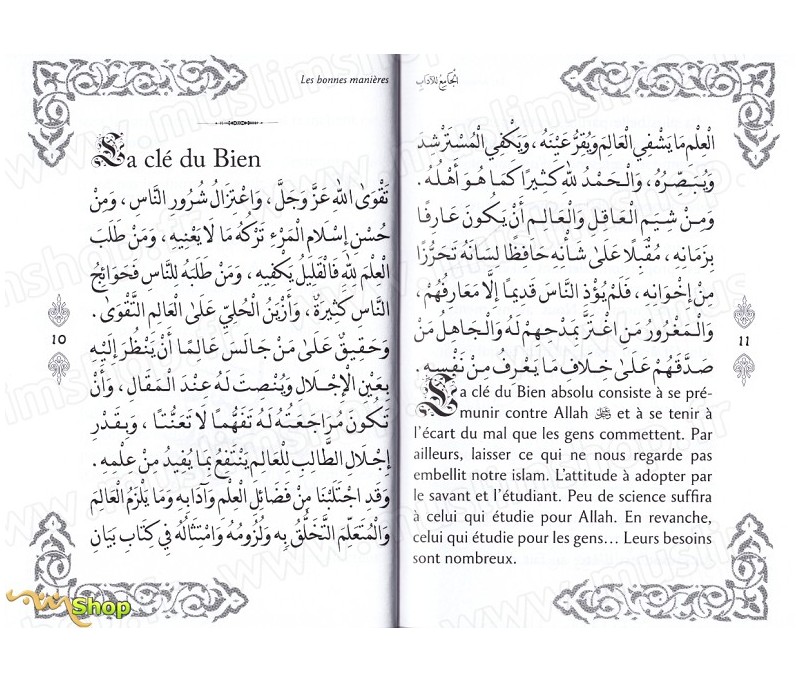 Les bonnes manières
La clé du Bien
تَقْوَى اللهِ عَزَّ وَجَلَّ ، وَاعْتِزَالُ شُرُورِ النَّاسِ ، وَمِنْ
حُسْنِ إِسْلَامِ الْمَرْءِ تَرْكُهُ مَا لَا يَعْنِيهِ ، وَمَنْ طَلَبَ
الْعِلْمَ لِلهِ فَالْقَلِيلُ يَكْفِيهِ ، وَمَنْ طَلَبَهُ لِلنَّاسِ فَحَوَائِجُ
النَّاسِ كَثِيرَةٌ ، وَأَزْيَنُ الْحُلِيِّ عَلَى الْعَالِمِ التَّقْوَى .
وَحَقِيقٌ عَلَى مَنْ جَالَسَ عَالِمًا أَنْ يَنْظُرَ إِلَيْهِ
بِعَيْنِ الْإِجْلَالِ وَيُنْصِتَ لَهُ عِنْدَ الْمَقَالِ ، وَأَنْ
تَكُونَ مُرَاجَعَتُهُ لَهُ تَفَهُّمًا لَا تَعَنُّتًا ، وَبِقَدْرِ
إِجْلَالِ الطَّالِبِ لِلْعَالِمِ يَنْتَفِعُ بِمَا يُفِيدُ مِنْ عِلْمِهِ .
وَقَدِ اجْتَلَبْنَا مِنْ فَضَائِلِ الْعِلْمِ وَآدَابِهِ وَمَا يَلْزَمُ الْعَالِمَ
وَالْمُتَعَلِّمَ التَّخَلُّقُ بِهِ وَلُزُومُهُ وَامْتِثَالُهُ فِي كِتَابِ بَيَانِ
10
الْجَامِعُ لِلْآدَابِ
الْعِلْمِ مَا يَشْفِي الْعَالِمَ وَيُقِرُّ عَيْنَهُ ، وَيَكْفِي الْمُسْتَرْشِدَ
وَيُبَصِّرُهُ ، وَالْحَمْدُ لِلهِ كَثِيرًا كَمَا هُوَ أَهْلُهُ .
وَمِنْ شِيَمِ الْعَاقِلِ وَالْعَالِمِ أَنْ يَكُونَ عَارِفًا
بِزَمَانِهِ ، مُقْبِلًا عَلَى شَأْنِهِ حَافِظًا لِسَانَهُ تَحَرُّزًا
مِنْ إِخْوَانِهِ ، فَلَمْ يُؤْذِ النَّاسَ قَدِيمًا إِلَّا مَعَارِفُهُمْ ،
وَالْمَغْرُورُ مَنِ اغْتَرَّ بِمَدْحِهِمْ لَهُ وَالْجَاهِلُ مَنْ
صَدَّقَهُمْ عَلَى خِلَافِ مَا يَعْرِفُ مِنْ نَفْسِهِ .
La clé du Bien absolu consiste à se pré-
munir contre Allah ﷻ et à se tenir à
l'écart du mal que les gens commettent. Par
ailleurs, laisser ce qui ne nous regarde pas
embellit notre islam. L'attitude à adopter par
le savant et l'étudiant. Peu de science suffira
à celui qui étudie pour Allah. En revanche,
celui qui étudie pour les gens… Leurs besoins
sont nombreux.
11
Shop